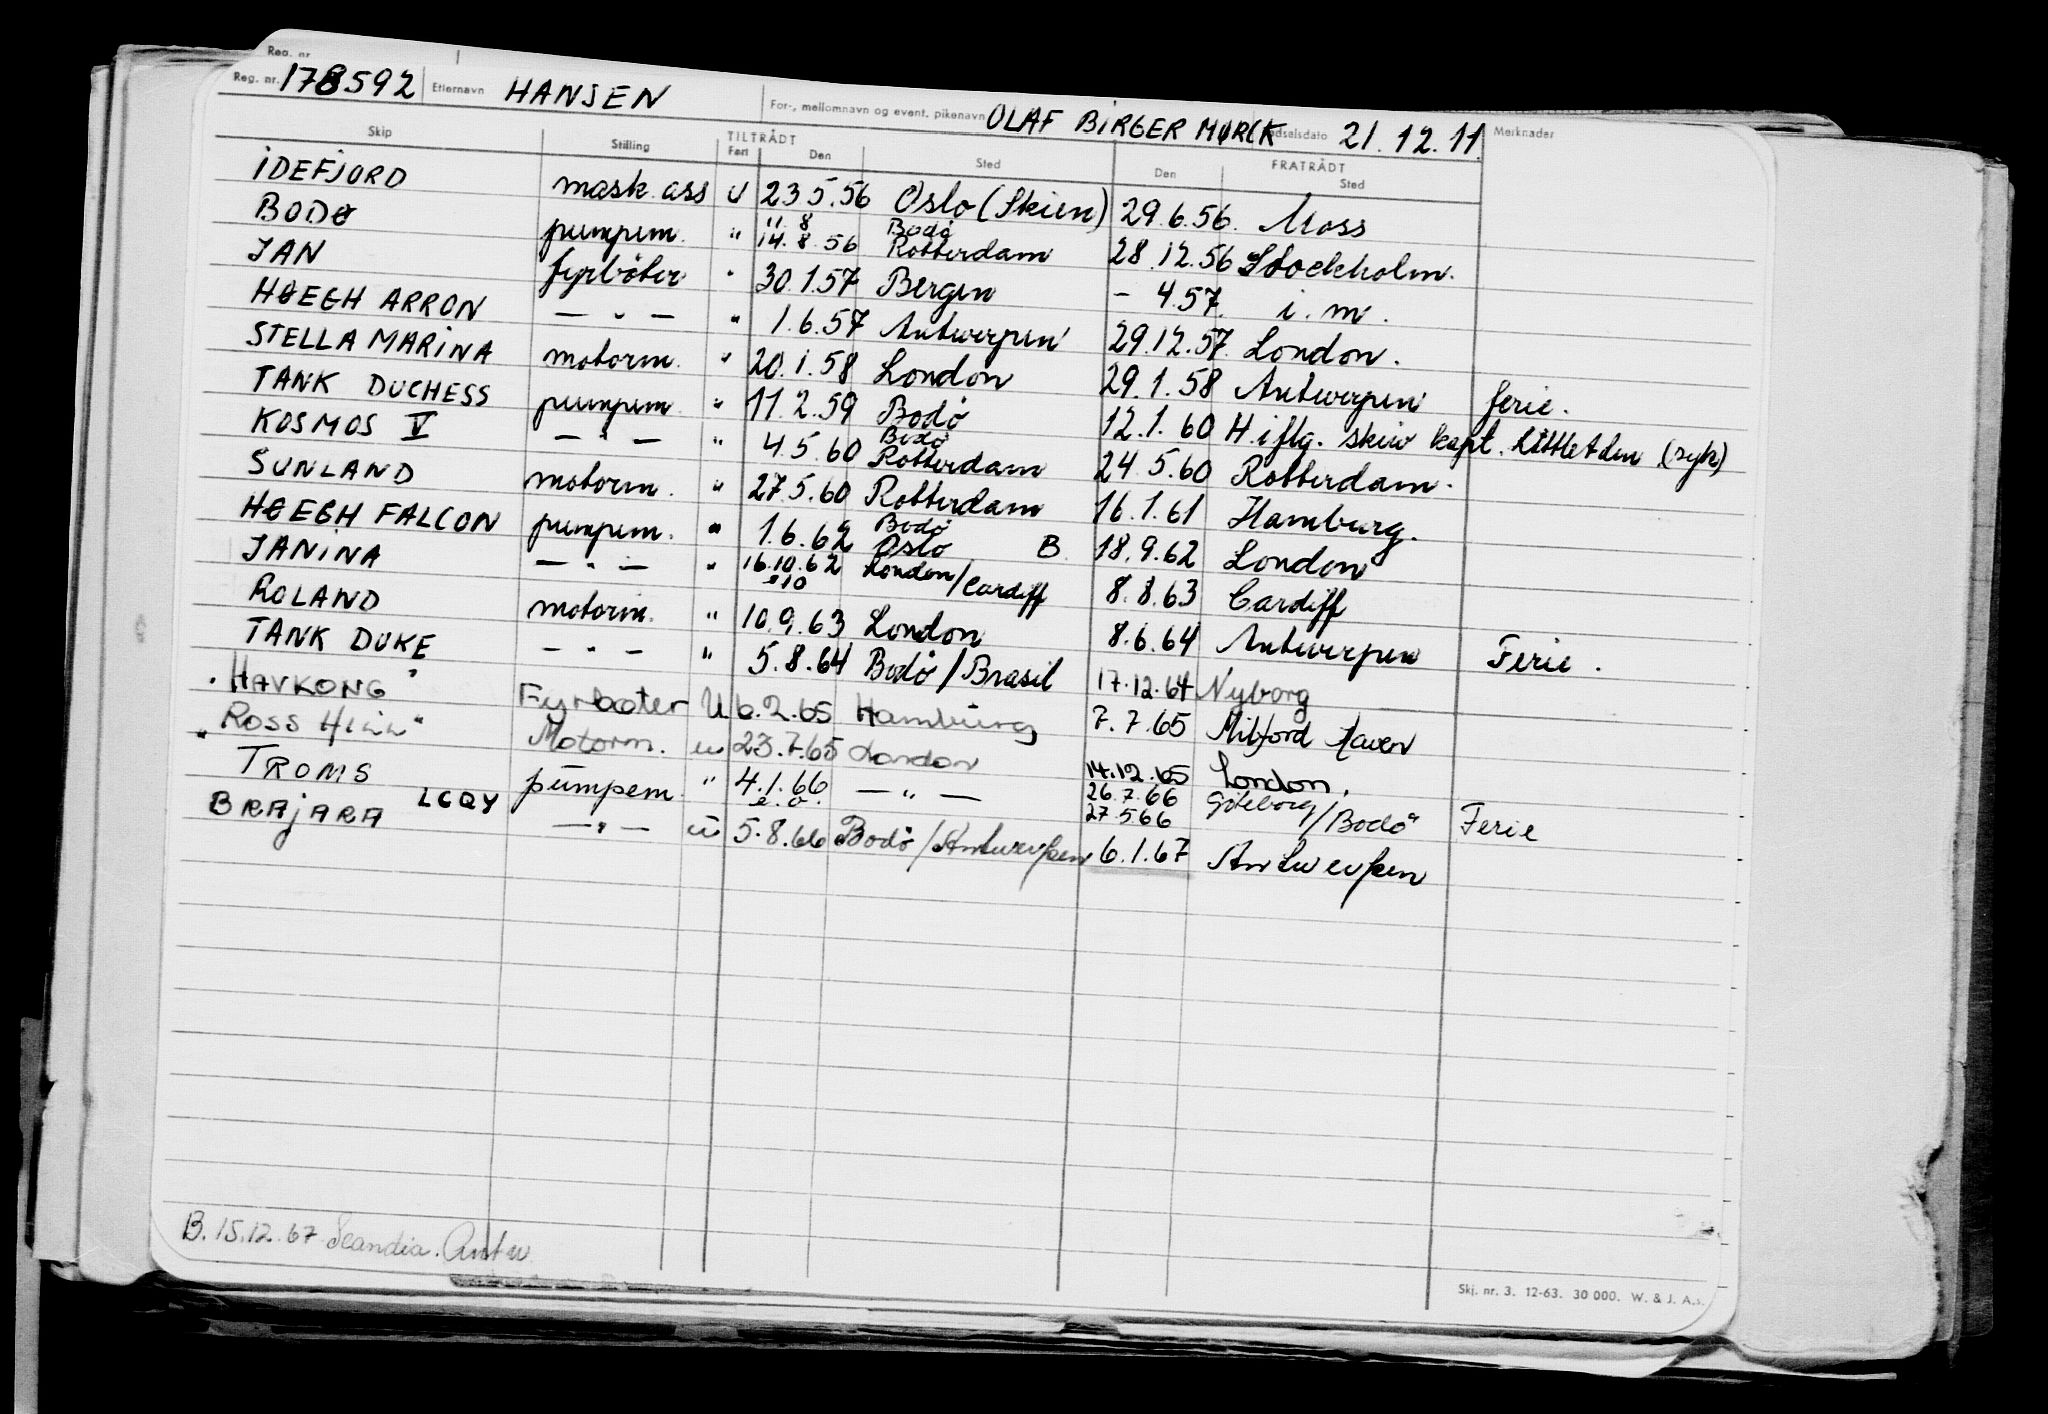 Reg. nr.
Reg. nr. 178592 Etternavn HANSEN For-, mellomnavn og event. pikenavn OLAF BIRGER MØRCK Fødselsdato 21.12.11 Merknader
Skip Stilling TILTRÅDT Fart Den Sted FRATRÅDT Den Sted
IDEFJORD mask. ass U 23 5.56 Oslo (Skien) 29.6.56. Moss
BODØ pumpem. " 11. 8 14.8.56 Bodø Rotterdam 28.12.56 Stockholm.
JAN fyrbøter " 30.1.57 Bergen – 4.57. i. m.
HØEGH ARRON — " — " 1.6.57 Antwerpen 29.12.57. London.
STELLA MARINA motorm. " 20.1.58 London 29.1.58 Antwerpen ferie.
TANK DUCHESS pumpem. " 11.2.59 Bodø 12.1.60 H. iflg. skriv kapt. LittletAden (syk)
KOSMOS V — " — " 4.5.60 Bodø Rotterdam 24.5.60 Rotterdam.
SUNLAND motorm. " 27.5.60 Rotterdam 16.1.61 Hamburg.
HØEGH FALCON pumpem. " 1.6.62 Bodø Oslo B. 18.9.62 London
JANINA — " — " 16.10.62 e.o London/Cardiff 8.8.63 Cardiff
ROLAND motorm. " 10.9.63 London 8.6.64 Antwerpen Ferie.
TANK DUKE — " — " 5.8.64 Bodø/Brasil 17.12.64 Nyborg
"HAVKONG" Fyrbøter U 6.2.65 Hamburg 7.7.65 Milford Haven
"ROSS HILL" Motorm. u 23.7.65 London 14.12.65 London.
TROMS LCQY pumpem. " 4.1.66 e.o. — " — 26.7.66 27.5.66 Göteborg/Bodø Ferie
BRAJARA — " — u 5.8.66 Bodø/Antwerpen 6.1.67 Antwerpen
B. 15.12.67 Scandia. Antw
Skj. nr. 3. 12-63. 30 000. W. & J. A.s.